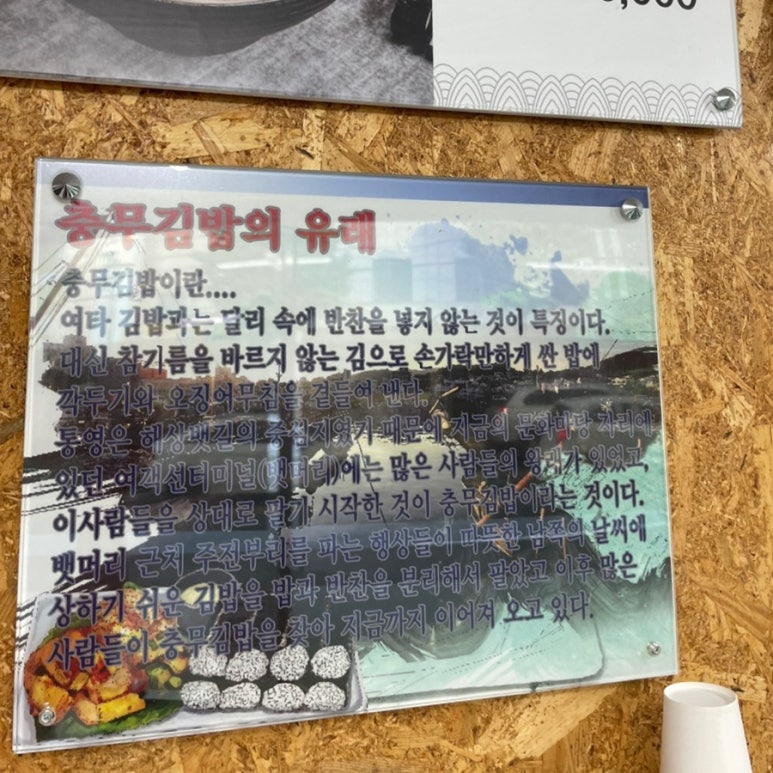 충무김밥의 유래
충무김밥이란....
여타 김밥과는 달리 속에 반찬을 넣지 않는 것이 특징이다.
대신 참기름을 바르지 않는 김으로 손가락만하게 싼 밥에
깍두기와 오징어무침을 곁들여 낸다.
통영은 해상뱃길의 중심지였기 때문에 지금의 문화마당 자리에
있던 여객선터미널(뱃머리)에는 많은 사람들의 왕래가 있었고,
이사람들을 상대로 팔기 시작한 것이 충무김밥이라는 것이다.
뱃머리 근처 주전부리를 파는 행상들이 따뜻한 남쪽의 날씨에
상하기 쉬운 김밥을 밥과 반찬을 분리해서 팔았고 이후 많은
사람들이 충무김밥을 찾아 지금까지 이어져 오고 있다.